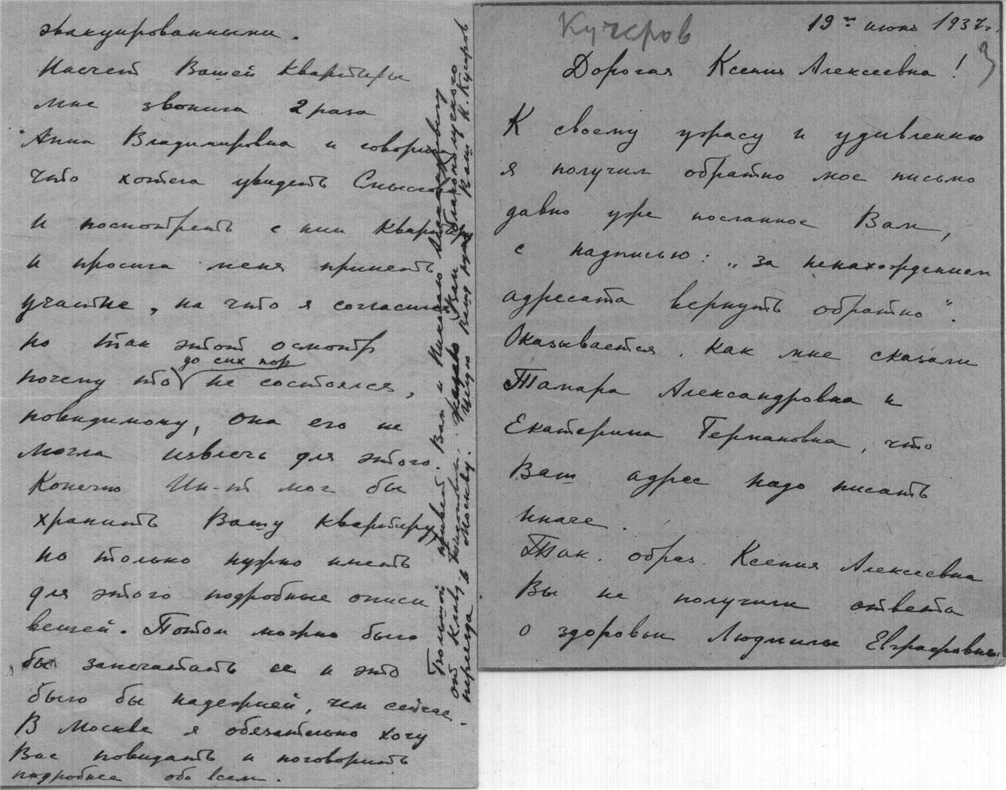 Кучеров
19го июня 1937г.
3
Дорогая Ксения Алексеевна!
К своему ужасу и удивлению
я получил обратно мое письмо
давно уже посланное Вам,
с надписью: „за ненахождением
адресата вернуть обратно".
Оказывается, как мне сказали
Тамара Александровна и
Екатерина Германовна, что
Ваш адрес надо писать
иначе.
Так. образ. Ксения Алексеевна
Вы не получили ответа
о здоровьи Людмилы Евграфовны
эвакуированными.
Насчет Вашей квартиры
мне звонила 2 раза
Анна Владимировна и говорила
что хотела увидеть
и посмотреть с ним квартиру
и просила меня принять
участие, на что я согласился
но так этот осмотр
почему то до сих пор не состоялся,
повидимому, она его не
могла извлечь для этого.
Конечно Ин-т мог бы
хранить Вашу квартиру,
но только нужно иметь
для этого подробные описи
вещей. Потом можно было
бы запечатать ее и это
было бы надежней, чем сейчас.
В Москве я обязательно хочу
Вас повидать и поговорить
подробнее обо всем.
Большой привет Вам и Николаю
от Желаю Вам благополучного
переезда в Москву. Ваш И. Кучеров